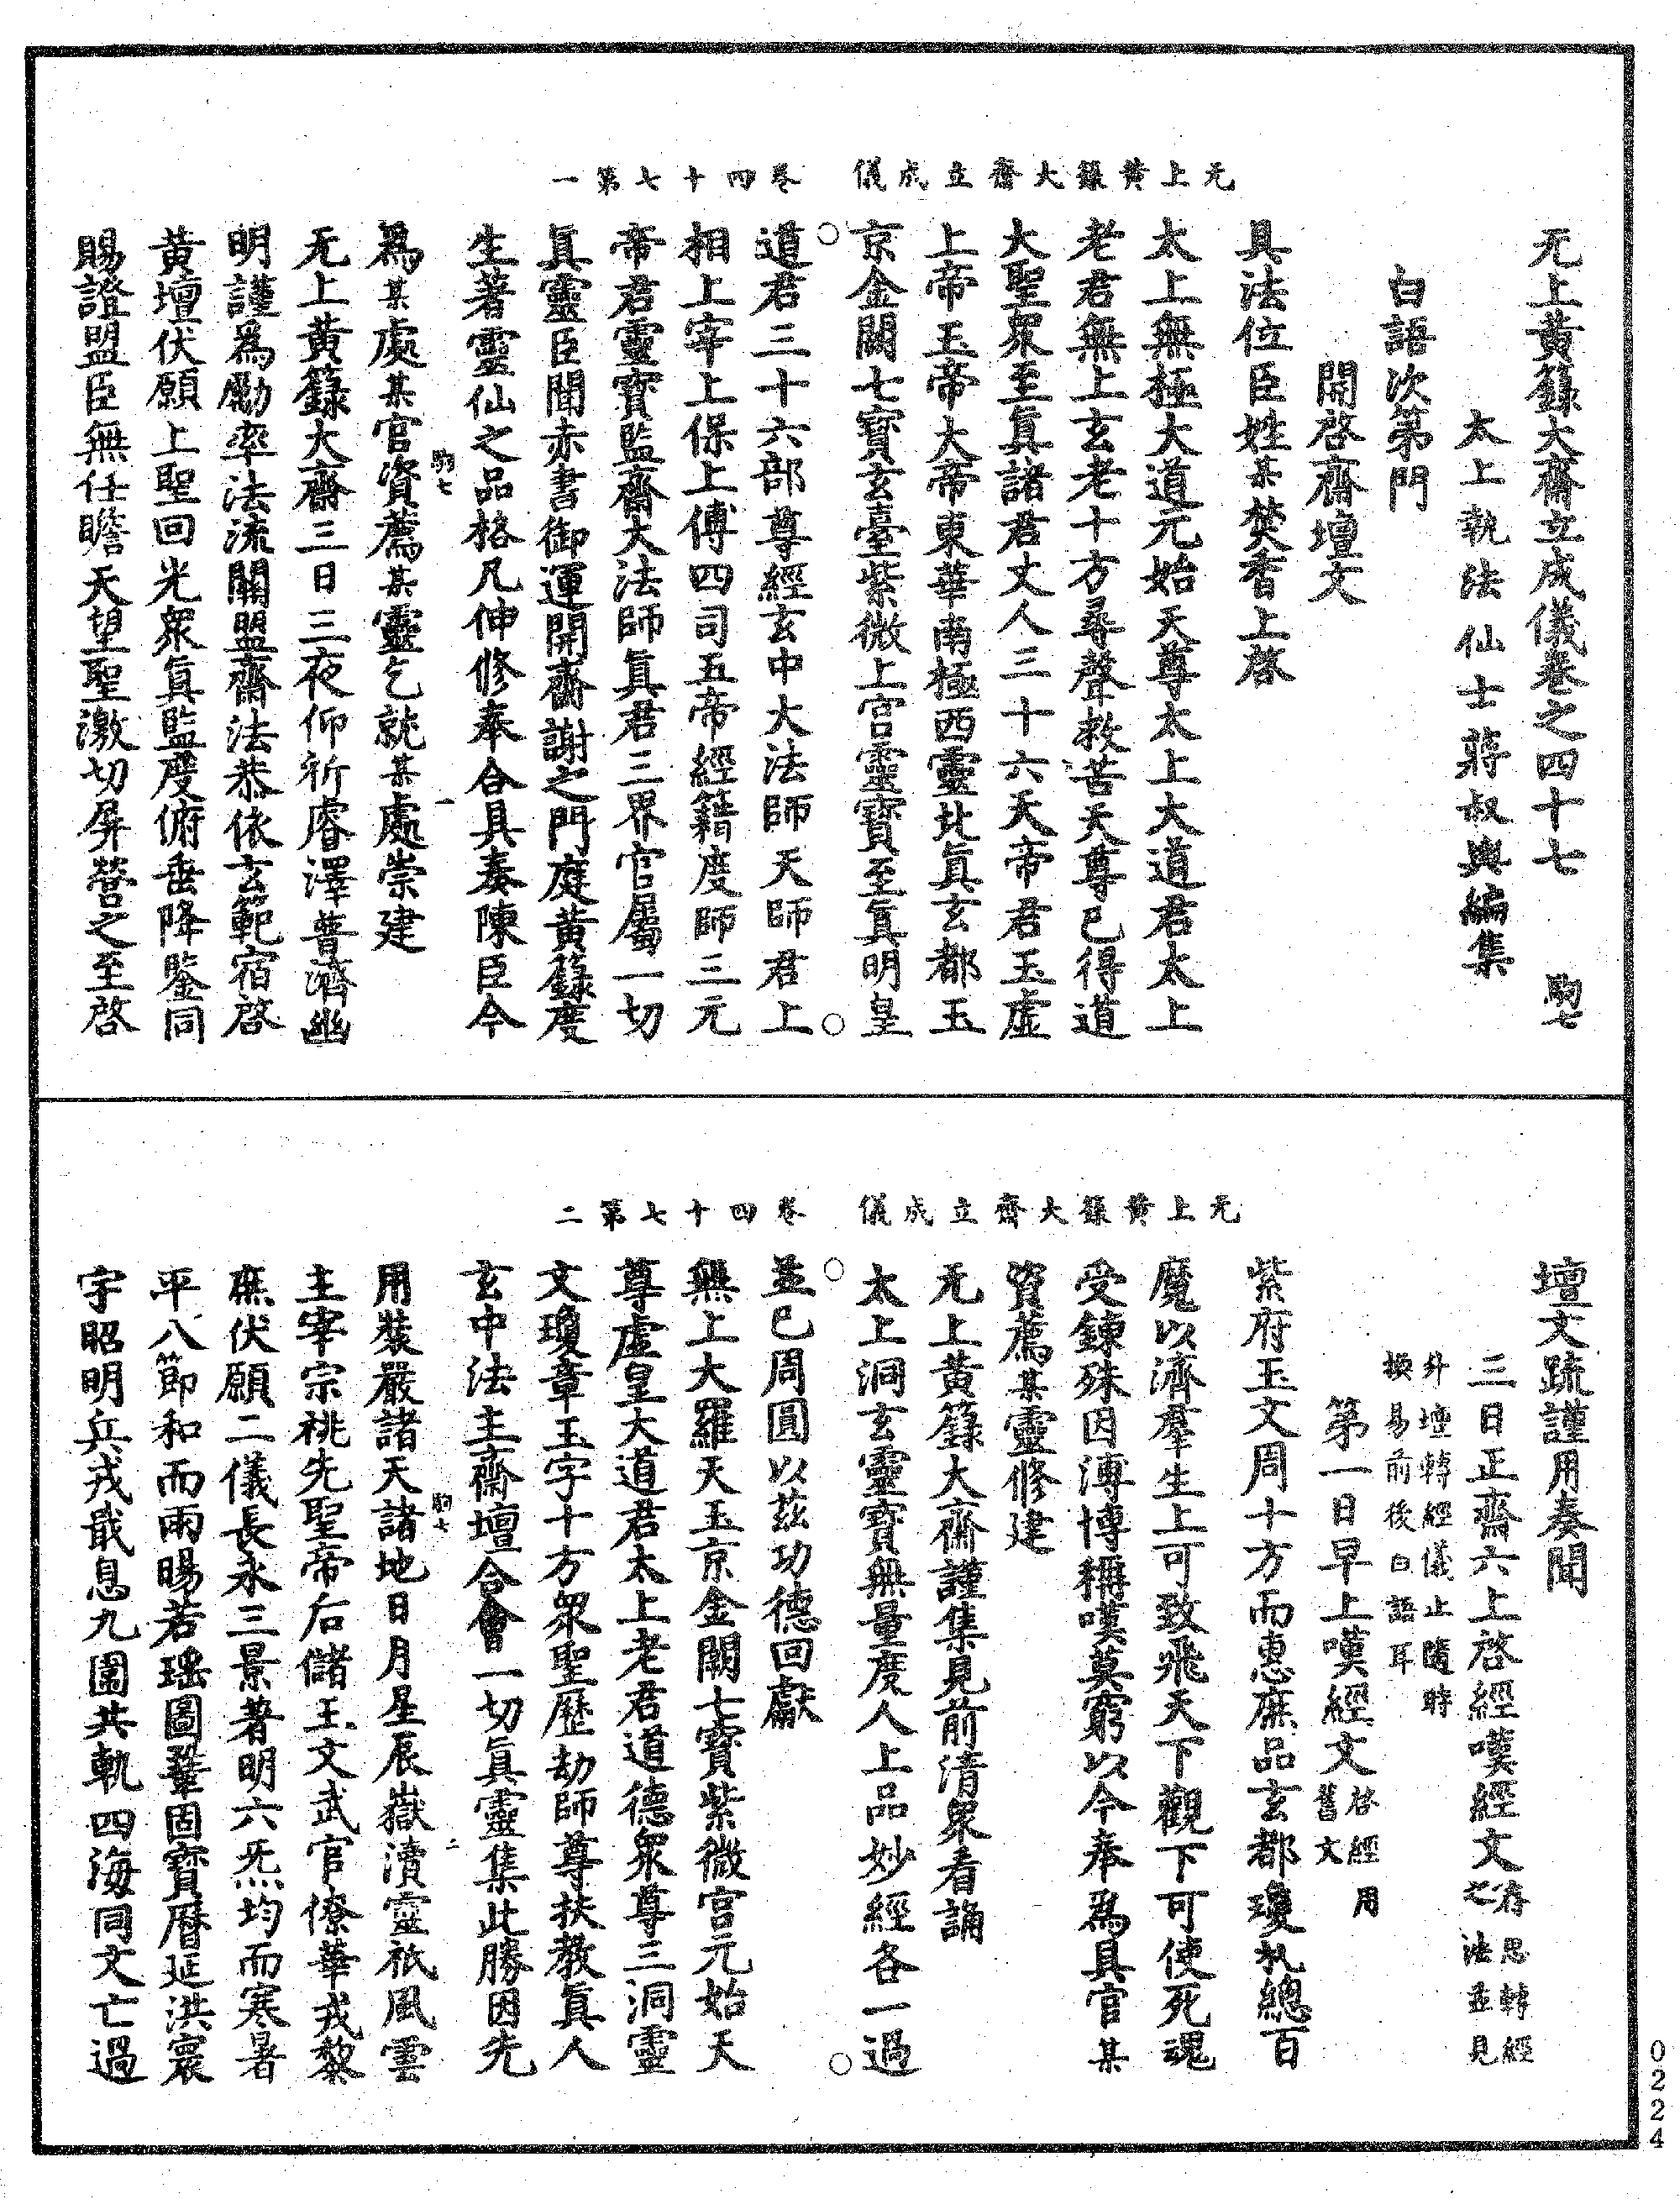 无上黃籙大齋立成儀卷之四十七　駒七
太上執法仙士蔣叔輿編集
白語次第門
開啓齋壇文
具法位臣姓某焚香上啓
太上無極大道元始天尊太上大道君太上
老君無上玄老十方尋聲救苦天尊已得道
大聖衆至眞諸君丈人三十六天帝君玉虛
上帝玉帝大帝東華南極西靈北眞玄都玉
京金闕七寶玄臺紫微上宮靈寶至眞明皇
无上黃籙大齋立成儀　卷四十七第一
道君三十六部尊經玄中大法師天師君上
相上宰上保上傅四司五帝經籍度師三元
帝君靈寶監齋大法師眞君三界官屬一切
眞靈臣聞赤書御運開齋謝之門庭黃籙度
生著靈仙之品格凡伸修奉合具奏陳臣今
駒七　一
爲某處某官資薦某靈乞就某處崇建
无上黃籙大齋三日三夜仰祈睿澤普濟幽
明謹爲勵率法流關盟齋法恭依玄範宿啓
黃壇伏願上聖回光衆眞監度俯垂降鑒同
賜證盟臣無任瞻天望聖激切屏營之至啓
壇文疏謹用奏聞
三日正齋六上啓經嘆經文存思轉經之法並見
外壇轉經儀止隨時
換易前後白語耳
第一日早上嘆經文啓經用舊文
紫府玉文周十方而惠庶品玄都瓊札總百
魔以濟羣生上可致飛天下觀下可使死魂
受鍊殊因溥博稱嘆莫窮以今奉爲具官某
資薦某靈修建
无上黃籙大齋謹集見前清衆看誦
太上洞玄靈寶無量度人上品妙經各一過
无上黃籙大齋立成儀　卷四十七第二
並已周圓以茲功德回獻
無上大羅天玉京金闕七寶紫微宮元始天
尊虛皇大道君太上老君道德衆尊三洞靈
文瓊章玉字十方衆聖歷劫師尊扶教眞人
玄中法主齋壇合會一切眞靈集此勝因先
駒七　二
用裝嚴諸天諸地日月星辰嶽瀆靈祇風雲
主宰宗祧先聖帝后儲王文武官僚華戎黎
庶伏願二儀長永三景著明六炁均而寒暑
平八節和而雨暘若瑤圖鞏固寶曆延洪寰
宇昭明兵戎戢息九圍共軌四海同文亡過
0224